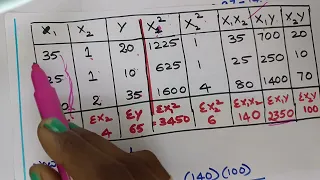 x₁ x₂ Y X₁² X₂² X₁X₂ X₁Y X₂Y
35 1 20 1225 1 35 700 20
25 1 10 625 1 25 250 10
2 35 1600 4 80 1400 70
Σx₂ 4 Σy 65 Σx₁² =3450 Σx₂² 6 140 2350 100
(140)(100)